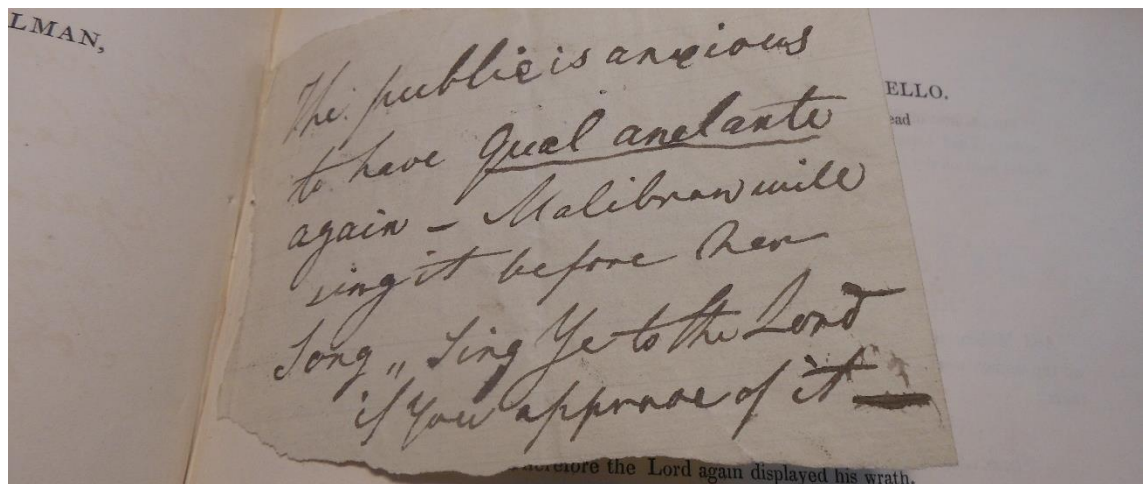 LMAN,
The public is anxious
to have Qual anelante
again – Malibran will
sing it before her
Song „ Sing Ye to the Lord
if You approve of it —
ELLO.
ead
the Lord again displayed his wrath.